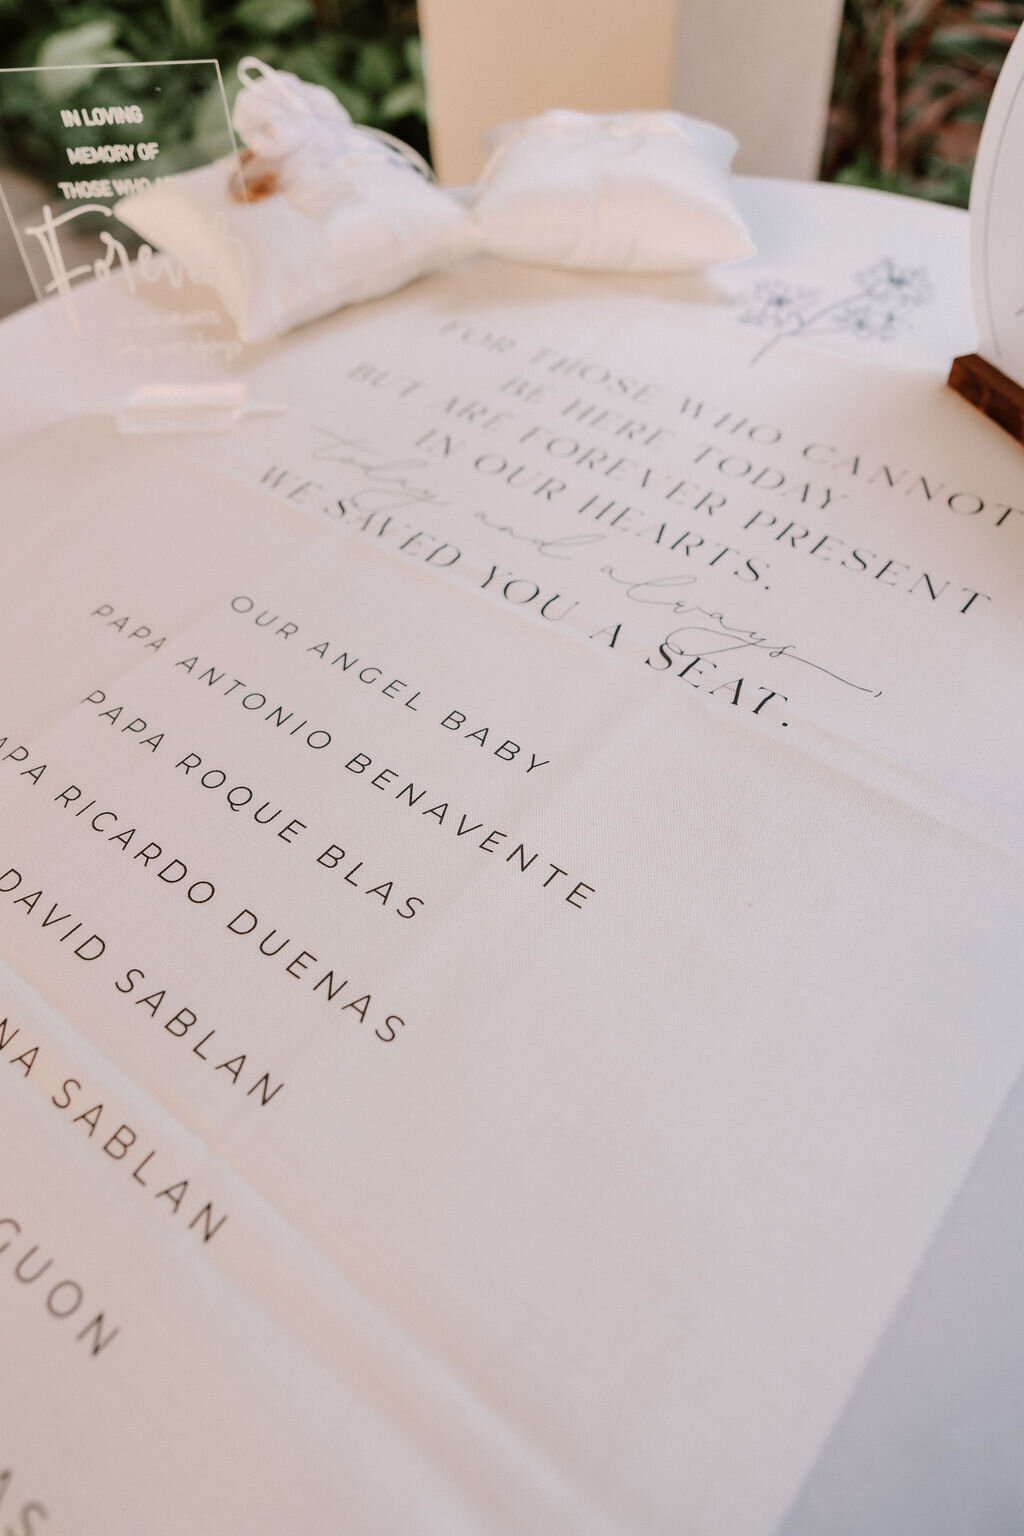 IN LOVING
MEMORY OF
THOSE WHO
Forever
FOR THOSE WHO CANNOT
BE HERE TODAY
BUT ARE FOREVER PRESENT
IN OUR HEARTS.
today and always,
WE SAVED YOU A SEAT.
OUR ANGEL BABY
PAPA ANTONIO BENAVENTE
PAPA ROQUE BLAS
APA RICARDO DUENAS
DAVID SABLAN
NA SABLAN
GUON
AS